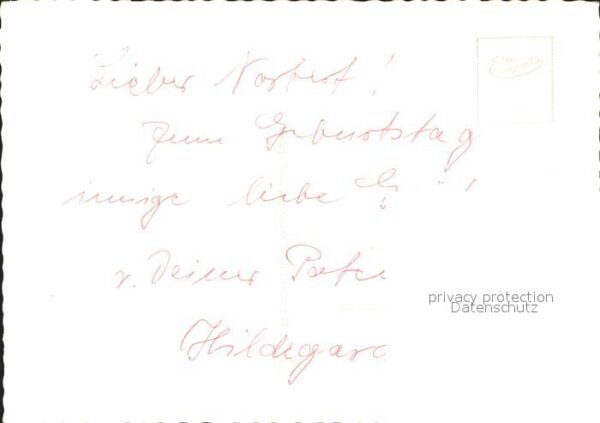 Lieber Norbert!
Zum Geburtstag
innige liebe
v. Deiner
Hildegard
privacy protection
Datenschutz